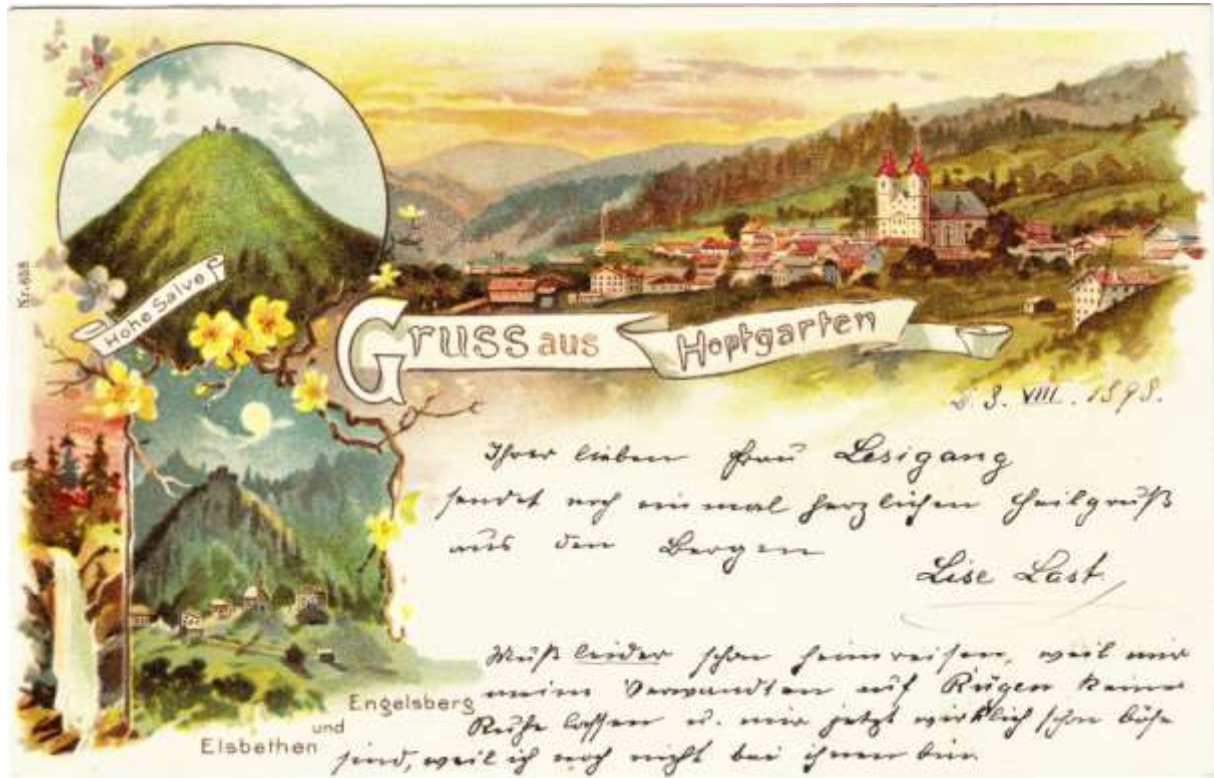 Hohe Salve
Gruss aus Hopfgarten
3. VIII. 1898.
Ihrer lieben Frau Lesigang
sendet noch einmal herzlichen Heilgruß
aus den Bergen
Lise Last
Muß leider schon heimreisen, weil mir
meine Verwandten auf Rügen keine
Ruhe lassen u. mir jetzt wirklich schon böse
sind, weil ich noch nicht bei ihnen bin.
Engelsberg
und
Elsbethen